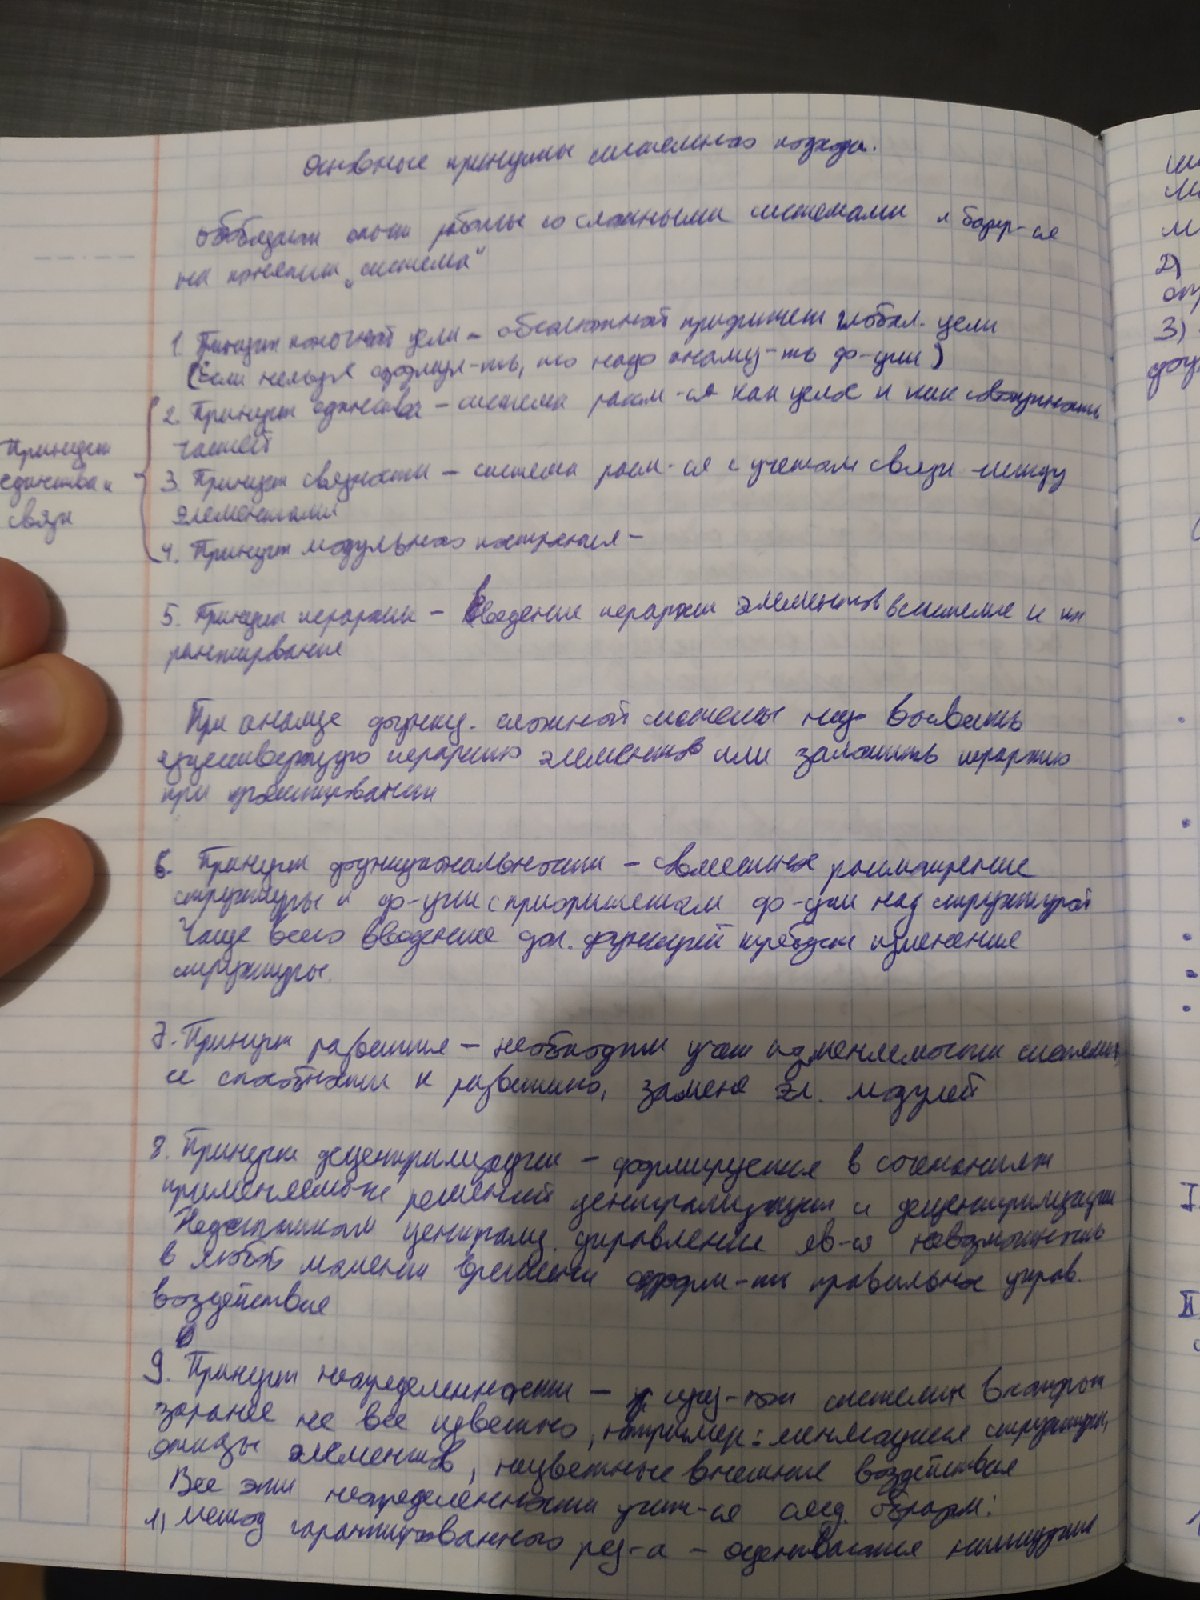 Основные принципы системного подхода.
обобщает опыт работы со сложными системами и базир-ся
на понятии „система"
1. Принцип конечной цели – абсолютный приоритет глобал. цели
(Если нельзя сформул-ть, то надо анализ-ть ф-ции)
2. Принцип единства – система рассм-ся как целое и как совокупность
частей
3. Принцип связности – система рассм-ся с учетом связи между
элементами
4. Принцип модульного построения –
Принцип
единства и
связи
5. Принцип иерархии – введение иерархии элементов в системе и их
ранжирование
При анализе функц. сложной системы надо выявить
существующую иерархию элементов или заложить иерархию
при проектировании
6. Принцип функциональности – совместное рассмотрение
структуры и ф-ции с приоритетом ф-ции над структурой
Чаще всего введение доп. функций требует изменения
структуры.
7. Принцип развития – необходим учет изменяемости системы,
ее способности к развитию, замене эл. модулей
8. Принцип децентрализации – формируется в сочетании
применяемых решений централизации и децентрализации
Недостатком централиз. управления яв-ся невозможность
в любой момент времени сформ-ть правильное управ.
воздействие
9. Принцип неопределенности – сущ-ют системы в которых
заранее не все известно, например: меняющиеся структуры,
отказы элементов, неизвестные внешние воздействия
Все эти неопределенности учит-ся след. образом:
1) метод гарантированного рез-а – оценивается наихудшие
2)
3)
I
II